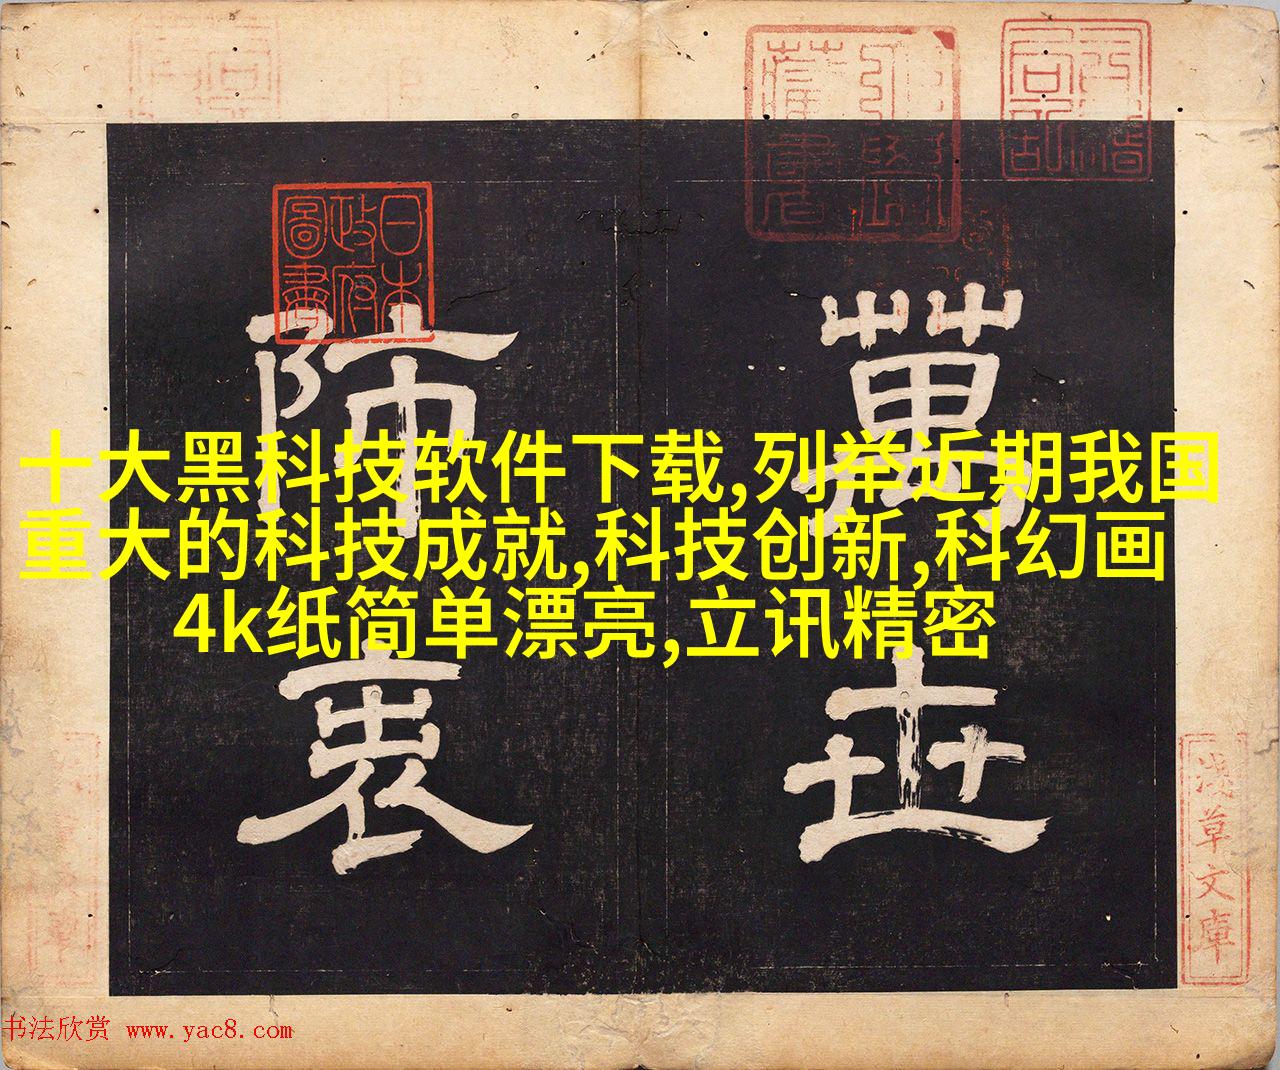 十大黑科技软件下载,列举近期我国
重大的科技成就,科技创新,科幻画
4k纸简单漂亮,立讯精密
萬世
師表
日本
政府
圖書
淺草文庫
书法欣赏 www.yac8.com